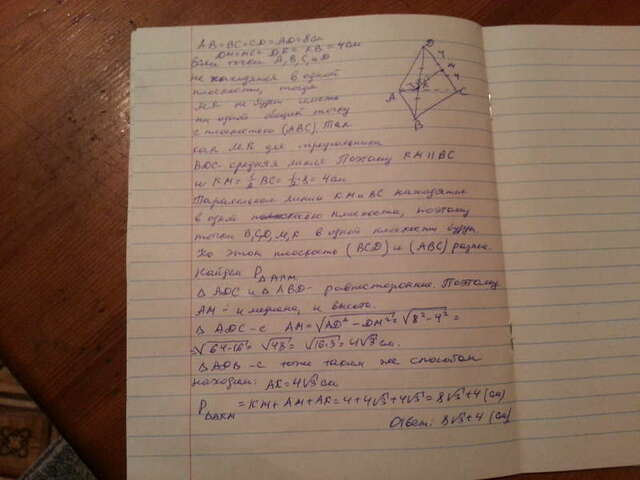 AB=BC=CD=AD=8см
DM=MC=DK=KB=4см
Если точки A,B,C,D
не находятся в одной
плоскости, тогда
MK не будет иметь
ни одной общей точку
с плоскостью (ABC). Так
как MK для треугольника
BDC средняя линия. Поэтому KM || BC
и KM = 1/2 BC = 1/2·8 = 4см
Параллельные линии KM и BC находятся
в одной плоскости, поэтому
точки B,C,D,M,K в одной плоскости будут.
Но этот плоскость (BCD) и (ABC) разные.
Найдем PΔAKM.
ΔADC и ΔABD - равносторонние. Поэтому
AM - и медиана, и высота.
ΔADC-с AM=√AD²-DM²=√8²-4²=
√64-16=√48=√16·3=4√3 см.
ΔADB-с тоже таким же способом
находим: AK=4√3 см
PΔAKM=KM+AM+AK=4+4√3+4√3=8√3+4 (см)
Ответ: 8√3+4 (см)
D
M
K
A
C
B